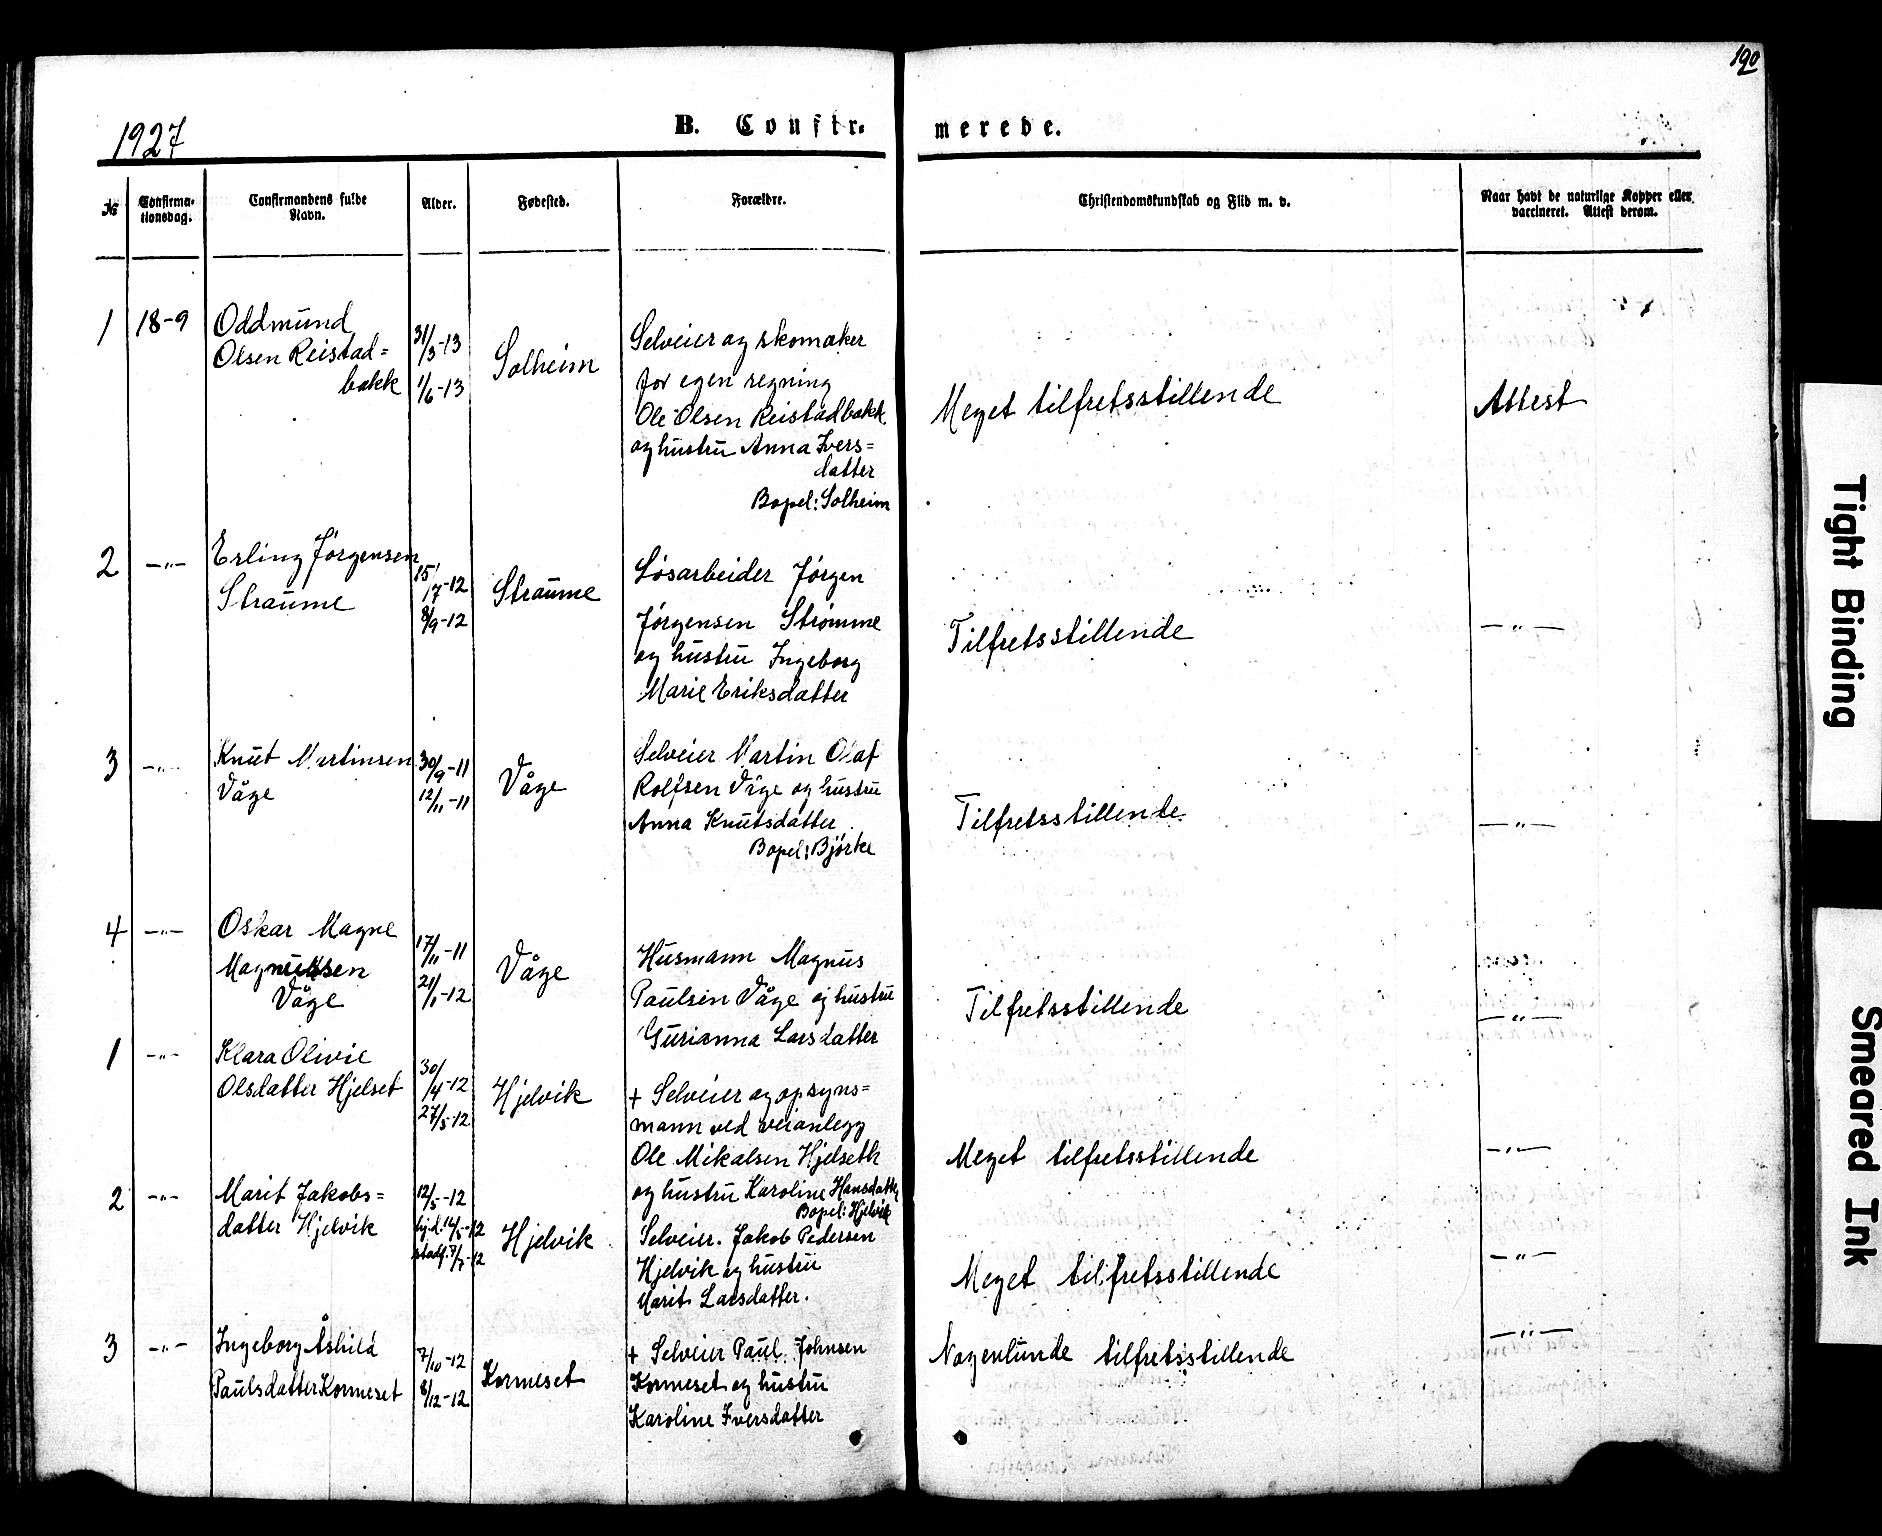 190
1927
B. Confir-
merede.
№
Confirma-
tionsdag.
Confirmandens fulde
Navn.
Alder.
Fødested.
Forældre.
Christendomskundskab og Flid m. v.
Naar havt de naturlige Kopper eller
vaccineret. Attest derom.
1
18-9
Oddmund
Olsen Reistad=
bakk
31/3-13
1/6-13
Solheim
Selveier og skomaker
for egen regning
Ole Olsen Reistadbakk
og hustru Anna Ivers=
datter
Bopel: Solheim
Meget tilfretsstillende
Attest
2
—"—
Erling Jørgensen
Straume
15/7-12
8/9-12
Straume
Løsarbeider Jørgen
Jørgensen Strømme
og hustru Ingeborg
Marie Eriksdatter
Tilfretsstillende
—"—
3
—"—
Knut Martinsen
Våge
30/9-11
12/11-11
Våge
Selveier Martin Olaf
Rolfsen Våge og hustru
Anna Knutsdatter
Bopel: Bjørke
Tilfretsstillende
—"—
4
—"—
Oskar Magne
Magnussen
Våge
17/11-11
21/1-12
Våge
Husmann Magnus
Paulsen Våge og hustru
Gurianna Larsdatter
Tilfretsstillende
—"—
1
—"—
Klara Olivie
Olsdatter Hjelset
30/4-12
27/5-12
Hjelvik
+ Selveier og opsyns=
mann ved veianlegg
Ole Mikalsen Hjelseth
og hustru Karoline Hansdatter
Bopel: Hjelvik
Meget tilfretsstillende
—"—
2
—"—
Marit Jakobs=
datter Hjelvik
12/5-12
hj.d. 14/5-12
stadf. 7/7-12
Hjelvik
Selveier. Jakob Pedersen
Hjelvik og hustru
Marit Larsdatter.
Meget tilfretsstillende
—"—
3
—"—
Ingeborg Åshild
Paulsdatter Kormeset
7/10-12
8/12-12
Kormeset
+ Selveier Paul Johnsen
Kormeset og hustru
Karoline Iversdatter
Nogenlunde tilfretsstillende
—"—
Tight Binding
Smeared Ink